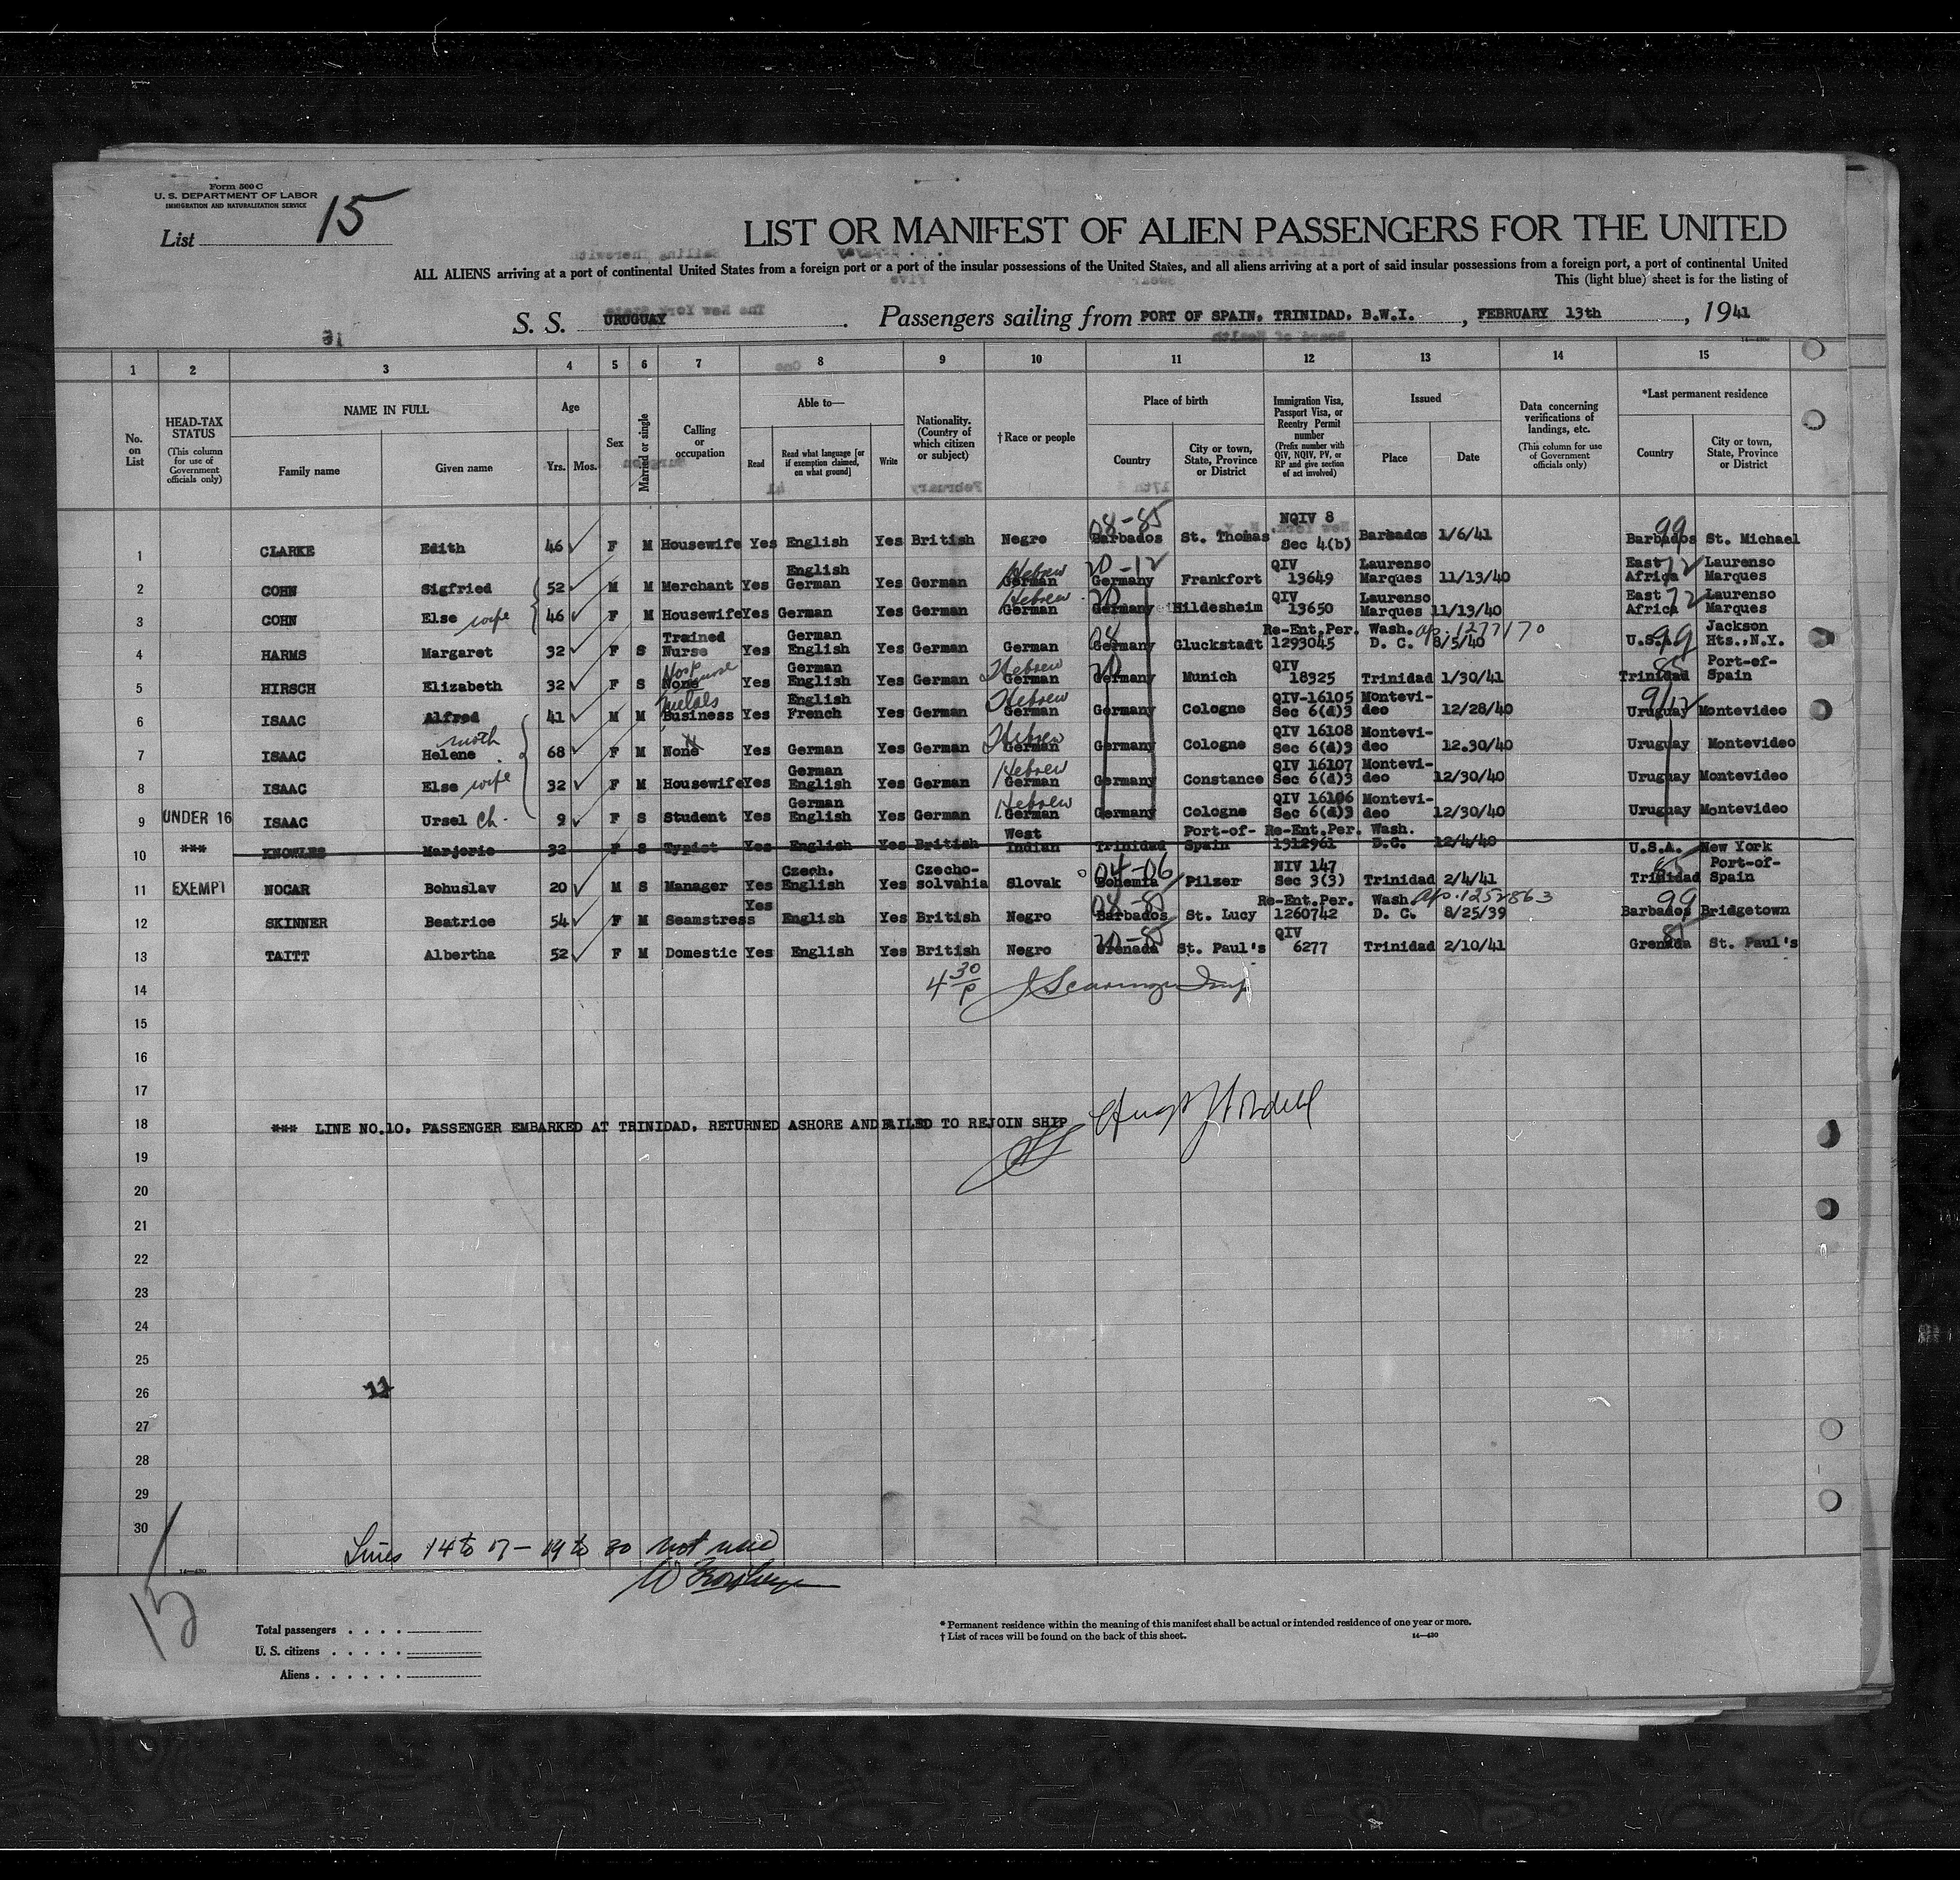 Form 500 C
U. S. DEPARTMENT OF LABOR
IMMIGRATION AND NATURALIZATION SERVICE
List 15
LIST OR MANIFEST OF ALIEN PASSENGERS FOR THE UNITED
ALL ALIENS arriving at a port of continental United States from a foreign port or a port of the insular possessions of the United States, and all aliens arriving at a port of said insular possessions from a foreign port, a port of continental United
This (light blue) sheet is for the listing of
S. S. URUGUAY. Passengers sailing from PORT OF SPAIN, TRINIDAD, B.W.I., FEBRUARY 13th, 1941
1 2 3 4 5 6 7 8 9 10 11 12 13 14 15
No. on List
HEAD-TAX STATUS (This column for use of Government officials only)
NAME IN FULL Family name Given name
Age Yrs. Mos.
Sex
Married or single
Calling or occupation
Able to— Read Read what language [or if exemption claimed, on what ground] Write
Nationality. (Country of which citizen or subject)
†Race or people
Place of birth Country City or town, State, Province or District
Immigration Visa, Passport Visa, or Reentry Permit number (Prefix number with QIV, NQIV, PV, or RP and give section of act involved)
Issued Place Date
Data concerning verifications of landings, etc. (This column for use of Government officials only)
*Last permanent residence Country City or town, State, Province or District
1 CLARKE Edith 46 F M Housewife Yes English Yes British Negro 08-85 Barbados St. Thomas NQIV 8 Sec 4(b) Barbados 1/6/41 99 Barbados St. Michael
2 COHN Sigfried 52 M M Merchant Yes English German Yes German Hebrew German 20-12 Germany Frankfort QIV 13649 Laurenso Marques 11/13/40 East Africa 72 Laurenso Marques
3 COHN Else wife 46 F M Housewife Yes German Yes German Hebrew German 20 Germany Hildesheim QIV 13650 Laurenso Marques 11/13/40 East Africa 72 Laurenso Marques
4 HARMS Margaret 32 F S Trained Nurse Yes German English Yes German German 08 Germany Gluckstadt Re-Ent.Per. 1293045 Wash. D. C. 8/5/40 ap. 1277170 U.S.A. 99 Jackson Hts.,N.Y.
5 HIRSCH Elizabeth 32 F S Hosp nurse None Yes German English Yes German Hebrew German 20 Germany Munich QIV 18925 Trinidad 1/30/41 85 Trinidad Port-of-Spain
6 ISAAC Alfred 41 M M Metals Business Yes English French Yes German Hebrew German Germany Cologne QIV-16105 Sec 6(d)3 Montevideo 12/28/40 91/12 Uruguay Montevideo
7 ISAAC Helene moth 68 F M None Yes German Yes German Hebrew German Germany Cologne QIV 16108 Sec 6(d)3 Montevideo 12.30/40 Uruguay Montevideo
8 ISAAC Else wife 32 F M Housewife Yes German English Yes German Hebrew German Germany Constance QIV 16107 Sec 6(d)3 Montevideo 12/30/40 Uruguay Montevideo
9 UNDER 16 ISAAC Ursel Ch. 9 F S Student Yes German English Yes German Hebrew German Germany Cologne QIV 16106 Sec 6(d)3 Montevideo 12/30/40 Uruguay Montevideo
10 *** KNOWLES Marjorie 32 F S Typist Yes English Yes British West Indian Trinidad Port-of-Spain Re-Ent.Per. 1312961 Wash. D.C. 12/4/40 U.S.A. New York
11 EXEMPT NOCAR Bohuslav 20 M S Manager Yes Czech. English Yes Czecho-solvahia Slovak 04-06 Bohemia Pilzer NIV 147 Sec 3(3) Trinidad 2/4/41 85 Trinidad Port-of-Spain
12 SKINNER Beatrice 54 F M Seamstress Yes English Yes British Negro 08-85 Barbados St. Lucy Re-Ent.Per. 1260742 Wash. D. C. 8/25/39 ap. 1252863 99 Barbados Bridgetown
13 TAITT Albertha 52 F M Domestic Yes English Yes British Negro 20-85 Grenada St. Paul's QIV 6277 Trinidad 2/10/41 85 Grenada St. Paul's
14 4 30 P
15
16
17
18 *** LINE NO.10. PASSENGER EMBARKED AT TRINIDAD, RETURNED ASHORE AND FAILED TO REJOIN SHIP
19
20
21
22
23
24
25
26 11
27
28
29
30
Lines 14 to 17 - 19 to 30 not used
14—430
15
Total passengers
U. S. citizens
Aliens
* Permanent residence within the meaning of this manifest shall be actual or intended residence of one year or more.
† List of races will be found on the back of this sheet.
14—430